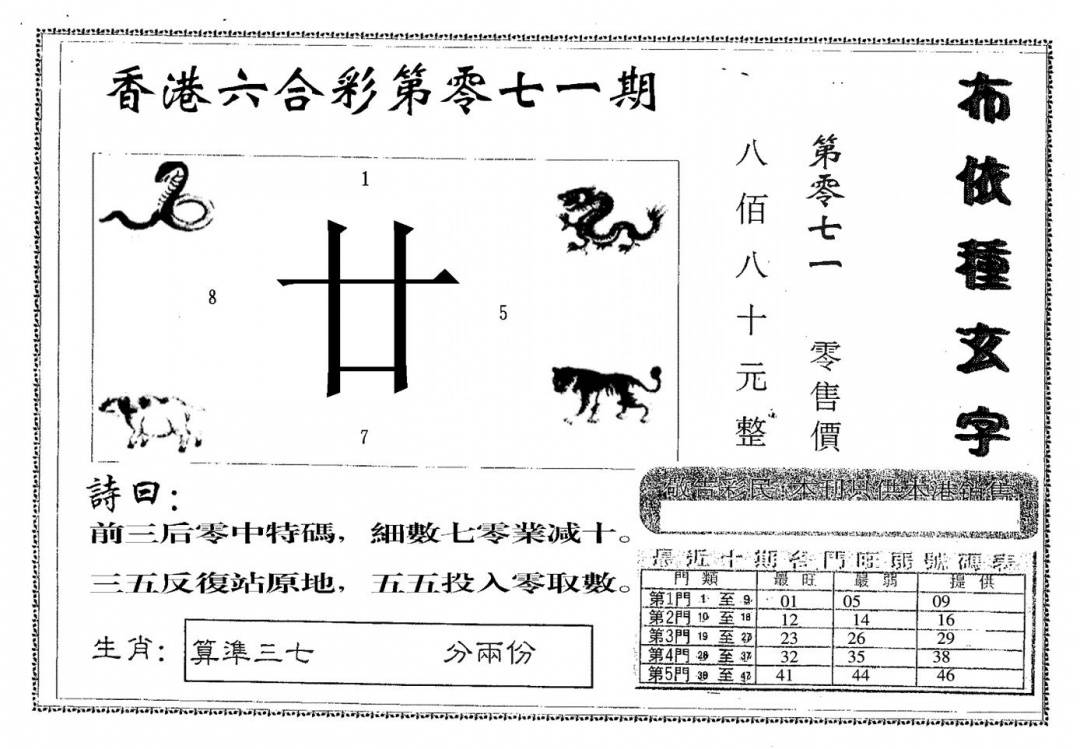 香港六合彩第零七一期
布依種玄字
第零七一 零售價
八佰八十元整
1
廿
8
5
7
詩曰：
前三后零中特碼，細數七零業减十。
三五反復站原地，五五投入零取數。
生肖：算準三七 分兩份
敬告彩民：本刊只供本港銷售
最近十期各門旺弱號碼表
門類 最旺 最弱 提供
第1門 1 至 9 01 05 09
第2門 10 至 18 12 14 16
第3門 19 至 27 23 26 29
第4門 28 至 37 32 35 38
第5門 38 至 47 41 44 46